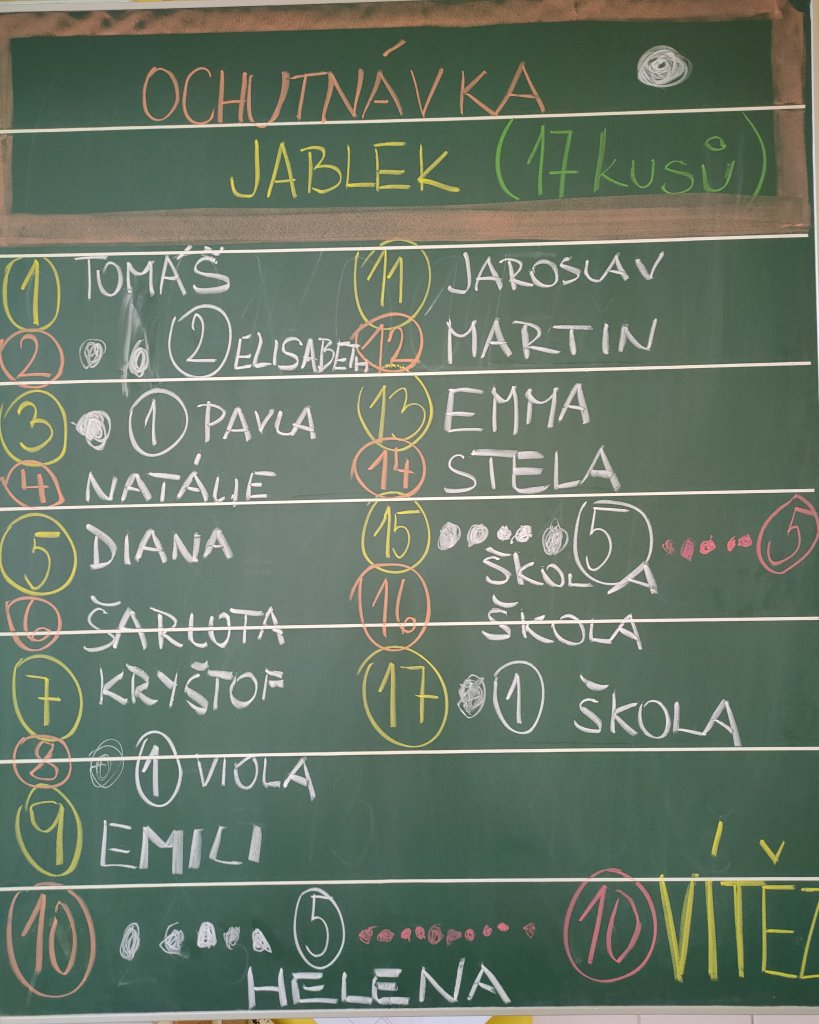 OCHUTNÁVKA
JABLEK (17 kusů)
1 TOMÁŠ
2 2 ELISABETH
3 1 PAVLA
4 NATÁLIE
5 DIANA
6 ŠARLOTA
7 KRYŠTOF
8 1 VIOLA
9 EMILI
10 5 10 VÍTĚZ
HELENA
11 JAROSLAV
12 MARTIN
13 EMMA
14 STELA
15 5 5
ŠKOLA
16 ŠKOLA
17 1 ŠKOLA